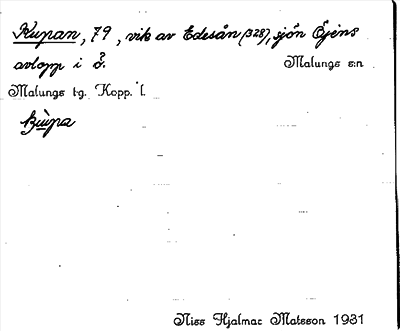 Kupan, 79, vik av Edesån (328), sjön Öjens
avlopp i ö. Malungs s:n
Malungs tg. Kopp. l.
Nils Hjalmar Matsson 1931